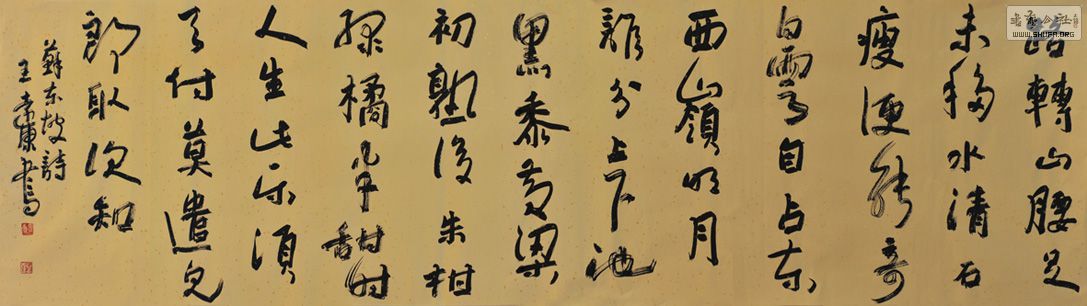 路轉山腰足
未移水清石
瘦便能奇
白雲自占东
西嶺明月
誰分上下池
黑黍黄粱
初熟後朱柑
綠橘半甜时
人生此乐須
天付莫遣兒
郎取次知
蘇东坡詩
王康书
书法公社
WWW.SHUFA.ORG